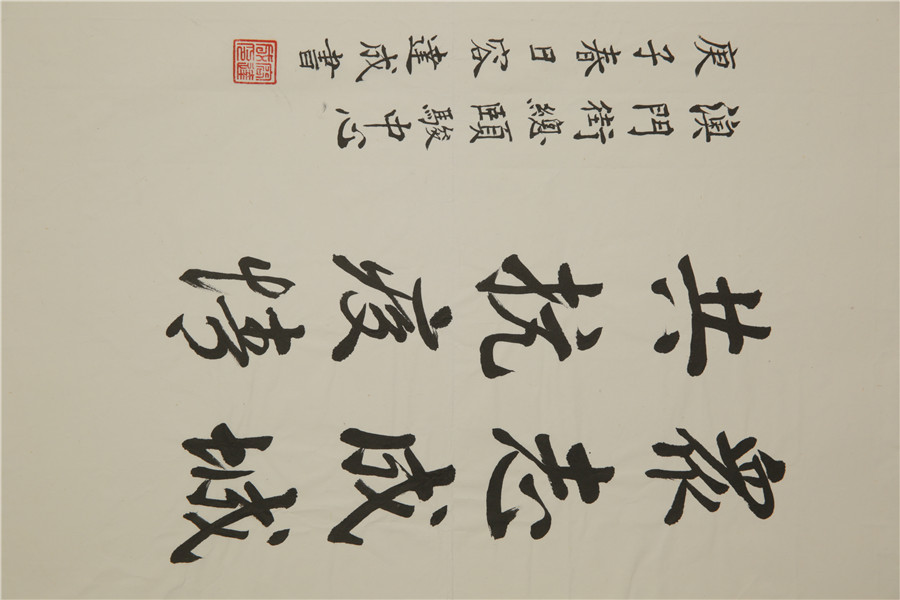 眾志成城
共抗疫情
澳門街總頤駿中心
庚子春日容達成書